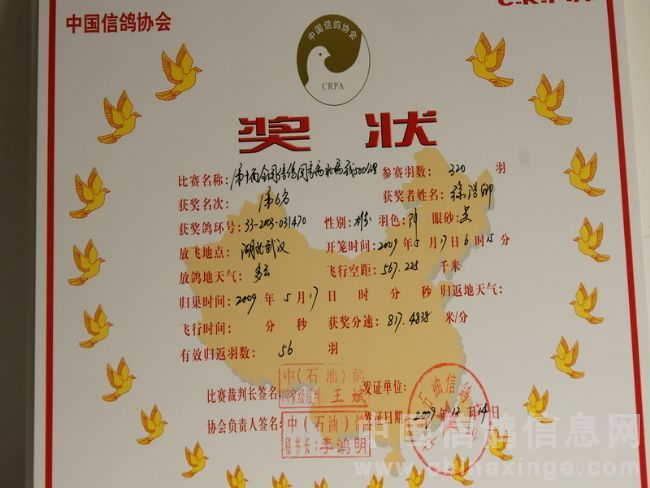 中国信鸽协会
中国信鸽协会
CRPA
奖 状
比赛名称： 500公里 参赛羽数： 320 羽
获奖名次： 第6名 获奖者姓名：
获奖鸽环号： 33-2003-031470 性别： 雄 羽色： 眼砂： 黄
放飞地点： 湖北武汉 开笼时间： 2009 年 5 月 17 日 6 时 15 分
放鸽地天气： 多云 飞行空距： 567.225 千米
归巢时间： 2009 年 5 月 17 日 时 分 秒 归返地天气：
飞行时间： 分 秒 获奖分速： 817.4838 米/分
有效归返羽数： 56 羽
中(石油)鸽
比赛裁判长签名： 国家级裁判：王斌 发证单位：
石油信鸽
中(石油)鸽
协会负责人签名： 秘书长：李鸿明 发证日期： 2009 年 12 月 24 日
中国信鸽信息网
www.chinaxinge.com